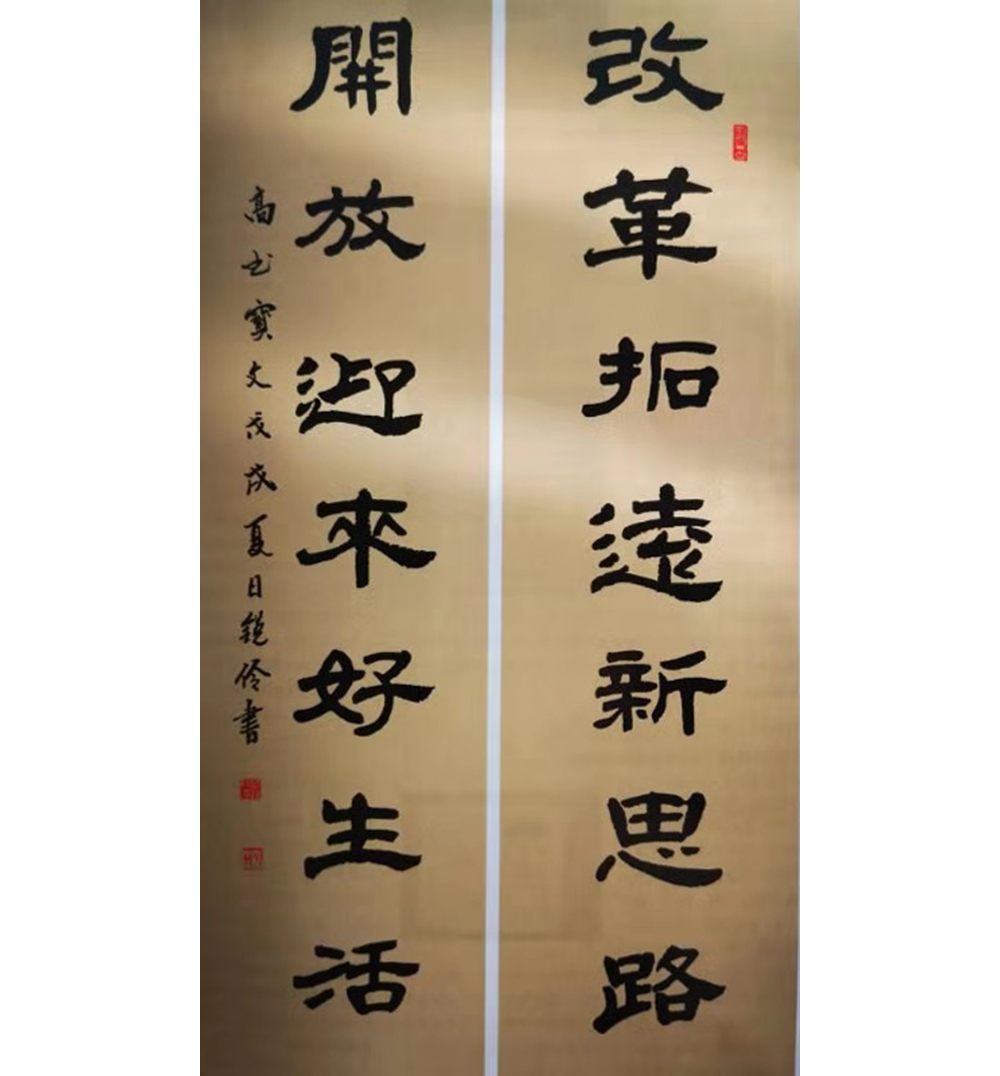 改革拓遠新思路
開放迎來好生活
高书寶文戊戌夏日鋭伶書